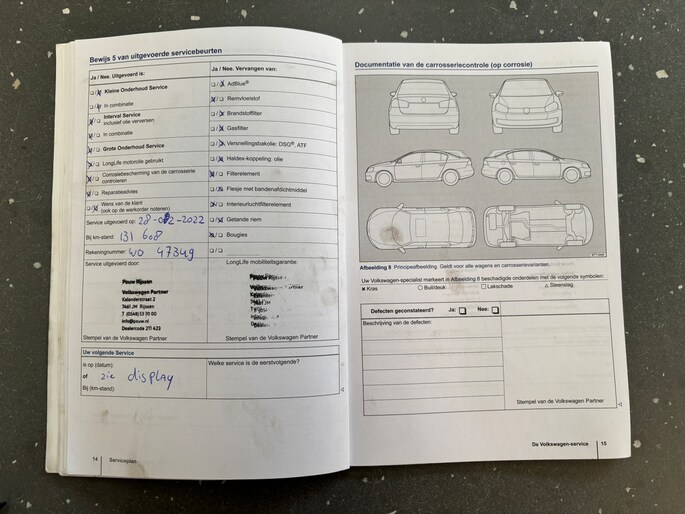 Bewijs 5 van uitgevoerde servicebeurten
Ja / Nee. Uitgevoerd is:
Kleine Onderhoud Service
In combinatie
Interval Service
inclusief olie verversen
In combinatie
Grote Onderhoud Service
LongLife motorolie gebruikt
Corrosiebescherming van de carrosserie
controleren
Reparatieadvies
Wens van de klant
(ook op de werkorder noteren)
Ja / Nee. Vervangen van:
AdBlue®
Remvloeistof
Brandstoffilter
Gasfilter
Versnellingsbakolie: DSG®, ATF
Haldex-koppeling: olie
Filterelement
Flesje met bandenafdichtmiddel
Interieurluchtfilterelement
Getande riem
Bougies
Service uitgevoerd op: 28-02-2022
Bij km-stand: 131 608
Rekeningnummer: WO 47349
Service uitgevoerd door:
Pouw Rijssen
Volkswagen Partner
Kalanderstraat 2
7461 JM Rijssen
T (0548) 53 70 00
info@pouw.nl
Dealercode 211 423
Stempel van de Volkswagen Partner
LongLife mobiliteitsgarantie:
Stempel van de Volkswagen Partner
Uw volgende Service
is op (datum):
of zie display
Bij (km-stand):
Welke service is de eerstvolgende?
14 Serviceplan
Documentatie van de carrosseriecontrole (op corrosie)
Afbeelding 8 Principeafbeelding. Geldt voor alle wagens en carrosserievarianten.
Uw Volkswagen-specialist markeert in Afbeelding 8 beschadigde onderdelen met de volgende symbolen:
Kras Buil/deuk Lakschade Steenslag
Defecten geconstateerd? Ja: Nee:
Beschrijving van de defecten:
Stempel van de Volkswagen Partner
De Volkswagen-service 15